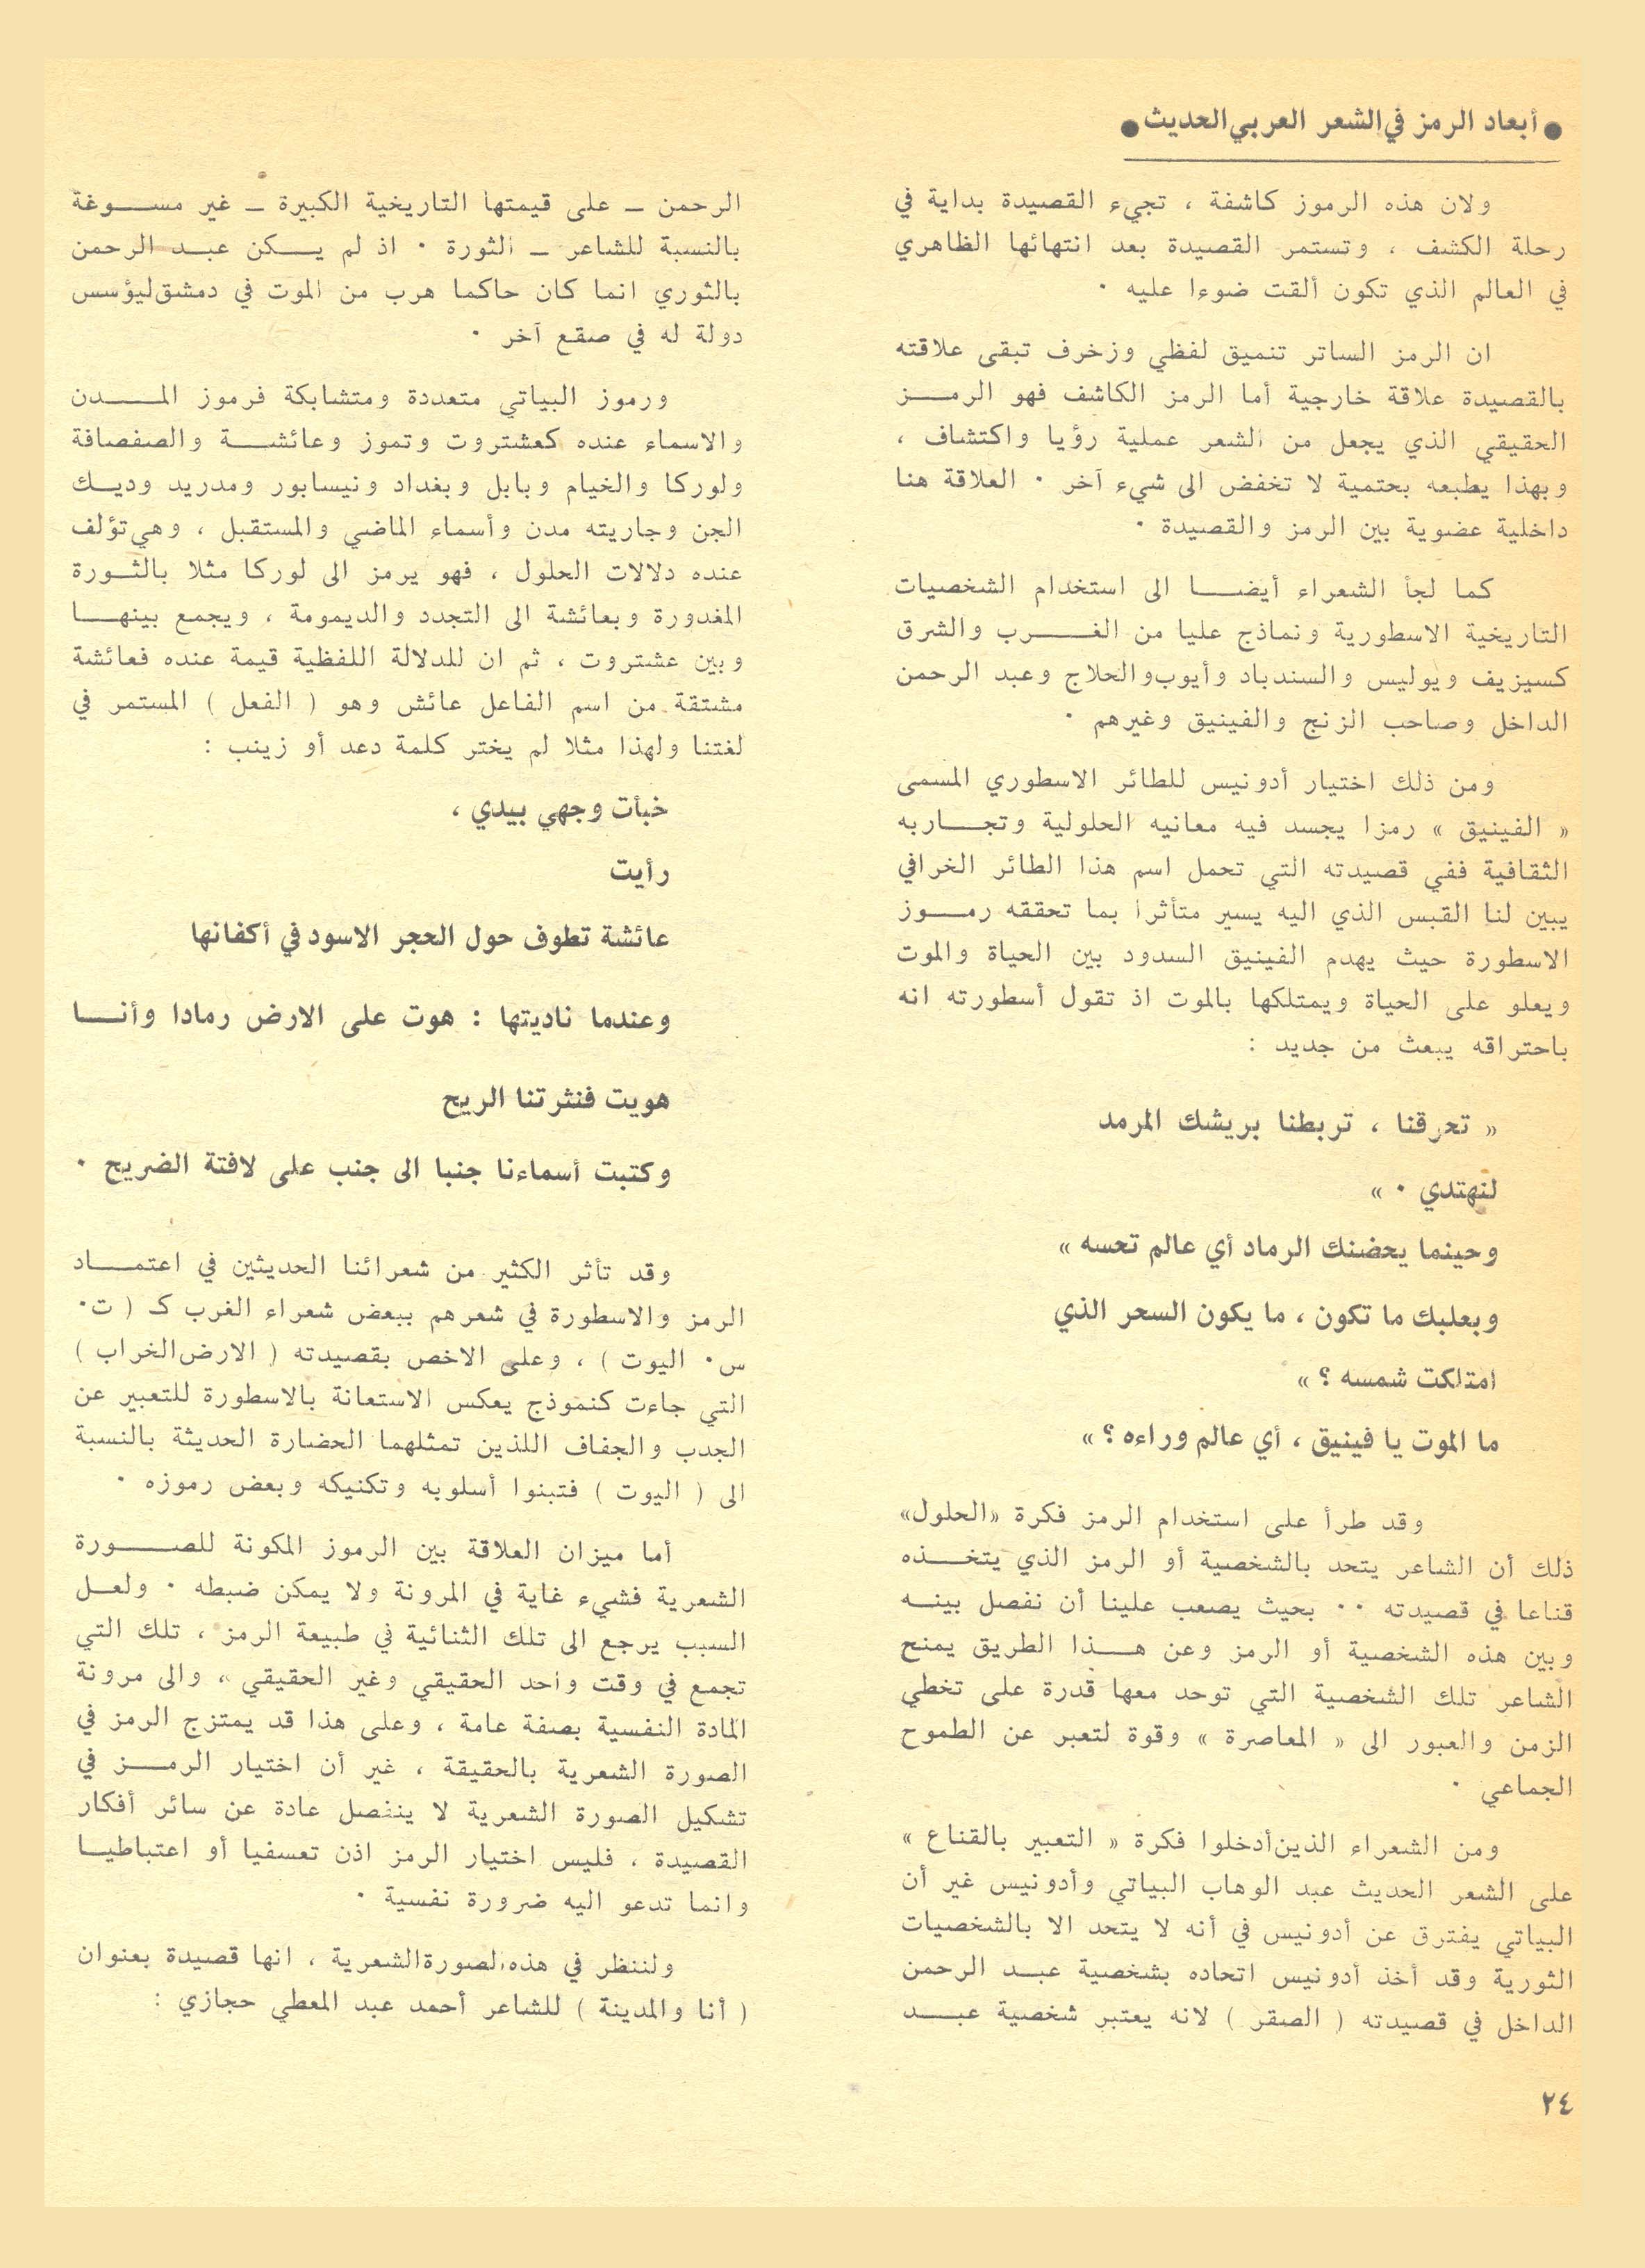 ● أبعاد الرمز في الشعر العربي الحديث ●
ولان هذه الرموز كاشفة ، تجيء القصيدة بداية في
رحلة الكشف ، وتستمر القصيدة بعد انتهائها الظاهري
في العالم الذي تكون ألقت ضوءا عليه ٠
ان الرمز الساتر تنميق لفظي وزخرف تبقى علاقته
بالقصيدة علاقة خارجية أما الرمز الكاشف فهو الرمز
الحقيقي الذي يجعل من الشعر عملية رؤيا واكتشاف ،
وبهذا يطبعه بحتمية لا تخفض الى شيء آخر ٠ العلاقة هنا
داخلية عضوية بين الرمز والقصيدة ٠
كما لجأ الشعراء أيضا الى استخدام الشخصيات
التاريخية الاسطورية ونماذج عليا من الغرب والشرق
كسيزيف ويوليس والسندباد وأيوب والحلاج وعبد الرحمن
الداخل وصاحب الزنج والفينيق وغيرهم ٠
ومن ذلك اختيار أدونيس للطائر الاسطوري المسمى
« الفينيق » رمزا يجسد فيه معانيه الحلولية وتجاربه
الثقافية ففي قصيدته التي تحمل اسم هذا الطائر الخرافي
يبين لنا القبس الذي اليه يسير متأثرا بما تحققه رموز
الاسطورة حيث يهدم الفينيق السدود بين الحياة والموت
ويعلو على الحياة ويمتلكها بالموت اذ تقول أسطورته انه
باحتراقه يبعث من جديد :
« تحرقنا ، تربطنا بريشك المرمد
لنهتدي ٠ »
وحينما يحضنك الرماد أي عالم تحسه »
وبعلبك ما تكون ، ما يكون السحر الذي
امتلكت شمسه ؟ »
ما الموت يا فينيق ، أي عالم وراءه ؟ »
وقد طرأ على استخدام الرمز فكرة «الحلول»
ذلك أن الشاعر يتحد بالشخصية أو الرمز الذي يتخذه
قناعا في قصيدته ٠٠ بحيث يصعب علينا أن نفصل بينه
وبين هذه الشخصية أو الرمز وعن هذا الطريق يمنح
الشاعر تلك الشخصية التي توحد معها قدرة على تخطي
الزمن والعبور الى « المعاصرة » وقوة لتعبر عن الطموح
الجماعي ٠
ومن الشعراء الذين أدخلوا فكرة « التعبير بالقناع »
على الشعر الحديث عبد الوهاب البياتي وأدونيس غير أن
البياتي يفترق عن أدونيس في أنه لا يتحد الا بالشخصيات
الثورية وقد أخذ أدونيس اتحاده بشخصية عبد الرحمن
الداخل في قصيدته ( الصقر ) لانه يعتبر شخصية عبد
الرحمن ـ على قيمتها التاريخية الكبيرة ـ غير مسوغة
بالنسبة للشاعر ـ الثورة ٠ اذ لم يكن عبد الرحمن
بالثوري انما كان حاكما هرب من الموت في دمشق ليؤسس
دولة له في صقع آخر ٠
ورموز البياتي متعددة ومتشابكة فرموز المدن
والاسماء عنده كعشتروت وتموز وعائشة والصفصافة
ولوركا والخيام وبابل وبغداد ونيسابور ومدريد وديك
الجن وجاريته مدن وأسماء الماضي والمستقبل ، وهي تؤلف
عنده دلالات الحلول ، فهو يرمز الى لوركا مثلا بالثورة
المغدورة وبعائشة الى التجدد والديمومة ، ويجمع بينها
وبين عشتروت ، ثم ان للدلالة اللفظية قيمة عنده فعائشة
مشتقة من اسم الفاعل عائش وهو ( الفعل ) المستمر في
لغتنا ولهذا مثلا لم يختر كلمة دعد أو زينب :
خبأت وجهي بيدي ،
رأيت
عائشة تطوف حول الحجر الاسود في أكفانها
وعندما ناديتها : هوت على الارض رمادا وأنا
هويت فنثرتنا الريح
وكتبت أسماءنا جنبا الى جنب على لافتة الضريح ٠
وقد تأثر الكثير من شعرائنا الحديثين في اعتماد
الرمز والاسطورة في شعرهم ببعض شعراء الغرب كـ ( ت٠
س٠ اليوت ) ، وعلى الاخص بقصيدته ( الارض الخراب )
التي جاءت كنموذج يعكس الاستعانة بالاسطورة للتعبير عن
الجدب والجفاف اللذين تمثلهما الحضارة الحديثة بالنسبة
الى ( اليوت ) فتبنوا أسلوبه وتكنيكه وبعض رموزه ٠
أما ميزان العلاقة بين الرموز المكونة للصورة
الشعرية فشيء غاية في المرونة ولا يمكن ضبطه ٠ ولعل
السبب يرجع الى تلك الثنائية في طبيعة الرمز ، تلك التي
تجمع في وقت واحد الحقيقي وغير الحقيقي ، والى مرونة
المادة النفسية بصفة عامة ، وعلى هذا قد يمتزج الرمز في
الصورة الشعرية بالحقيقة ، غير أن اختيار الرمز في
تشكيل الصورة الشعرية لا ينفصل عادة عن سائر أفكار
القصيدة ، فليس اختيار الرمز اذن تعسفيا أو اعتباطيا
وانما تدعو اليه ضرورة نفسية ٠
ولننظر في هذه الصورة الشعرية ، انها قصيدة بعنوان
( أنا والمدينة ) للشاعر أحمد عبد المعطي حجازي :
٢٤